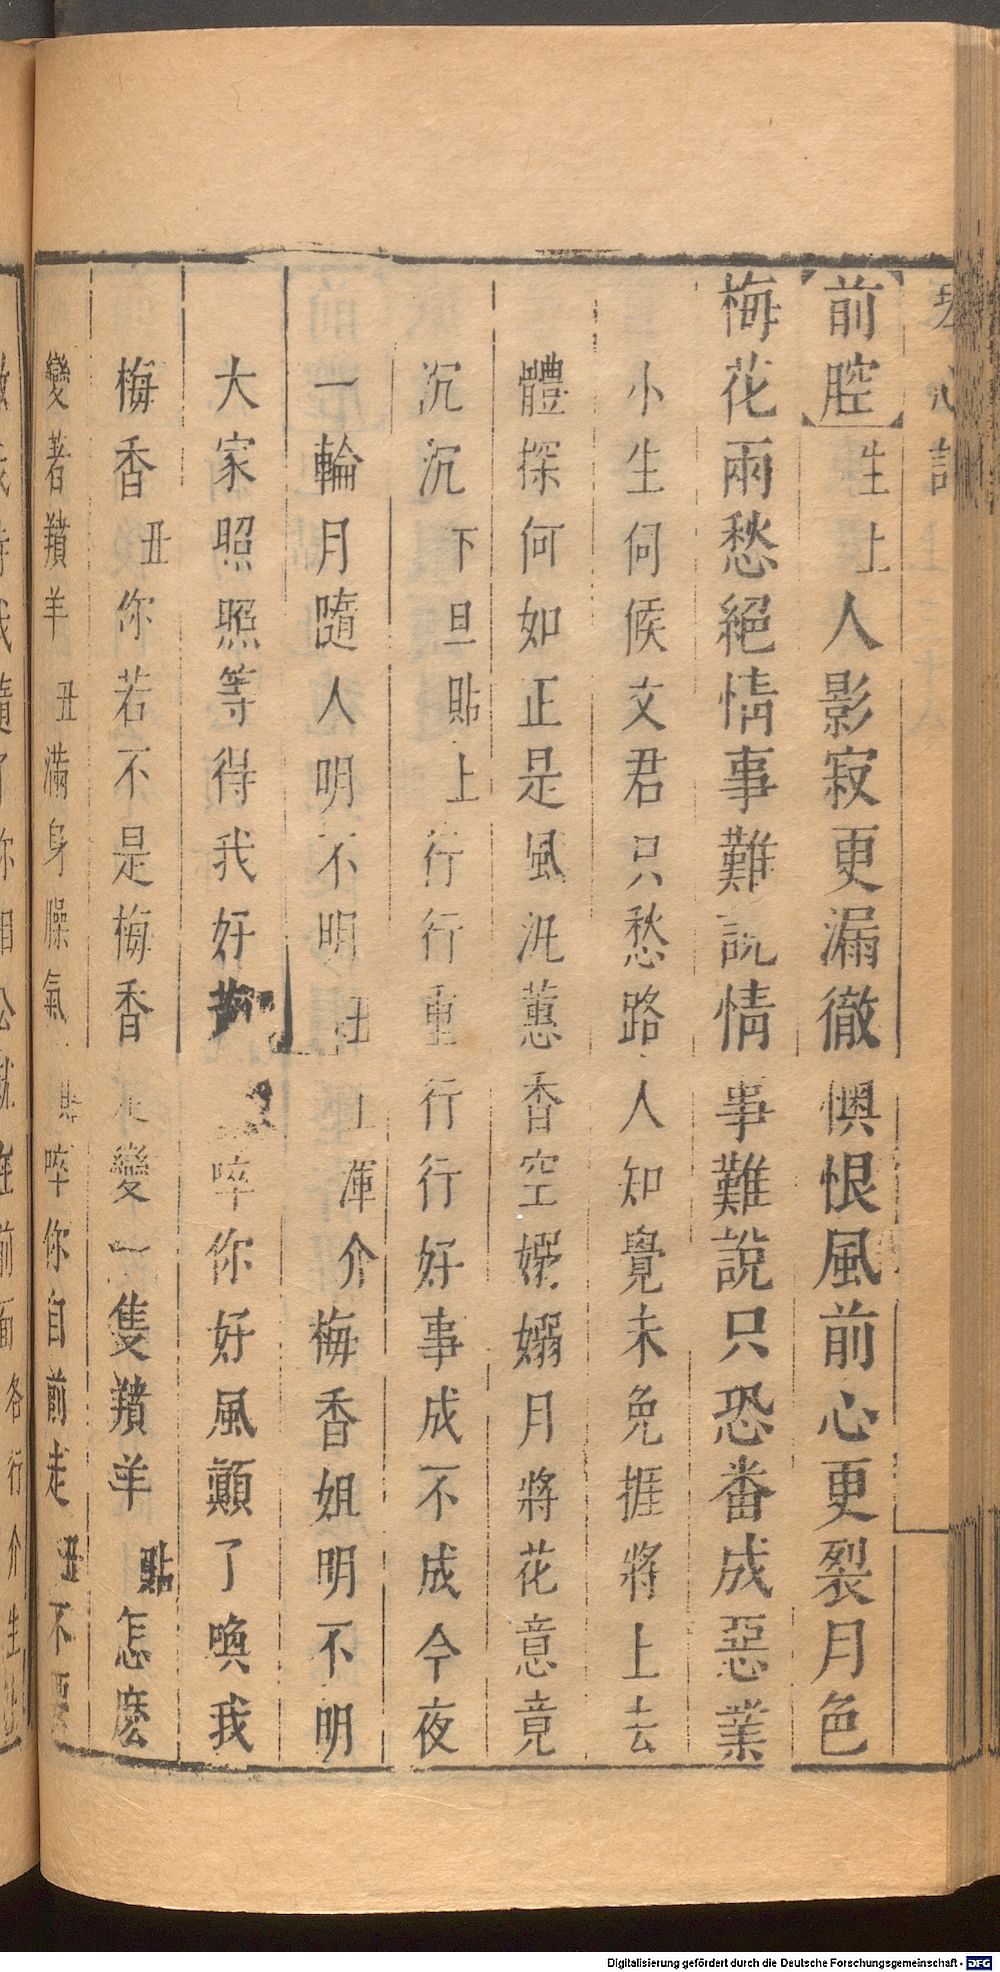 琴心記
【前腔】生上人影寂更漏徹懊恨風前心更裂月色
梅花兩愁絕情事難說情事難說只恐番成惡業
小生伺候文君只愁路人知覺未免捱將上去
體探何如正是風汎蕙香空嬝嫋月將花意竟
沉沉下旦貼上行行重行行好事成不成今夜
一輪月隨人明不明丑上渾介梅香姐明不明
大家照照等得我好啐你好風顛了喚我
梅香丑你若不是梅香變一隻羵羊貼怎麽
變著羵羊丑滿身臊氣貼啐你自前走丑不要
我隨了你相公就在前面各行介生
Digitalisierung gefördert durch die Deutsche Forschungsgemeinschaft - DFG